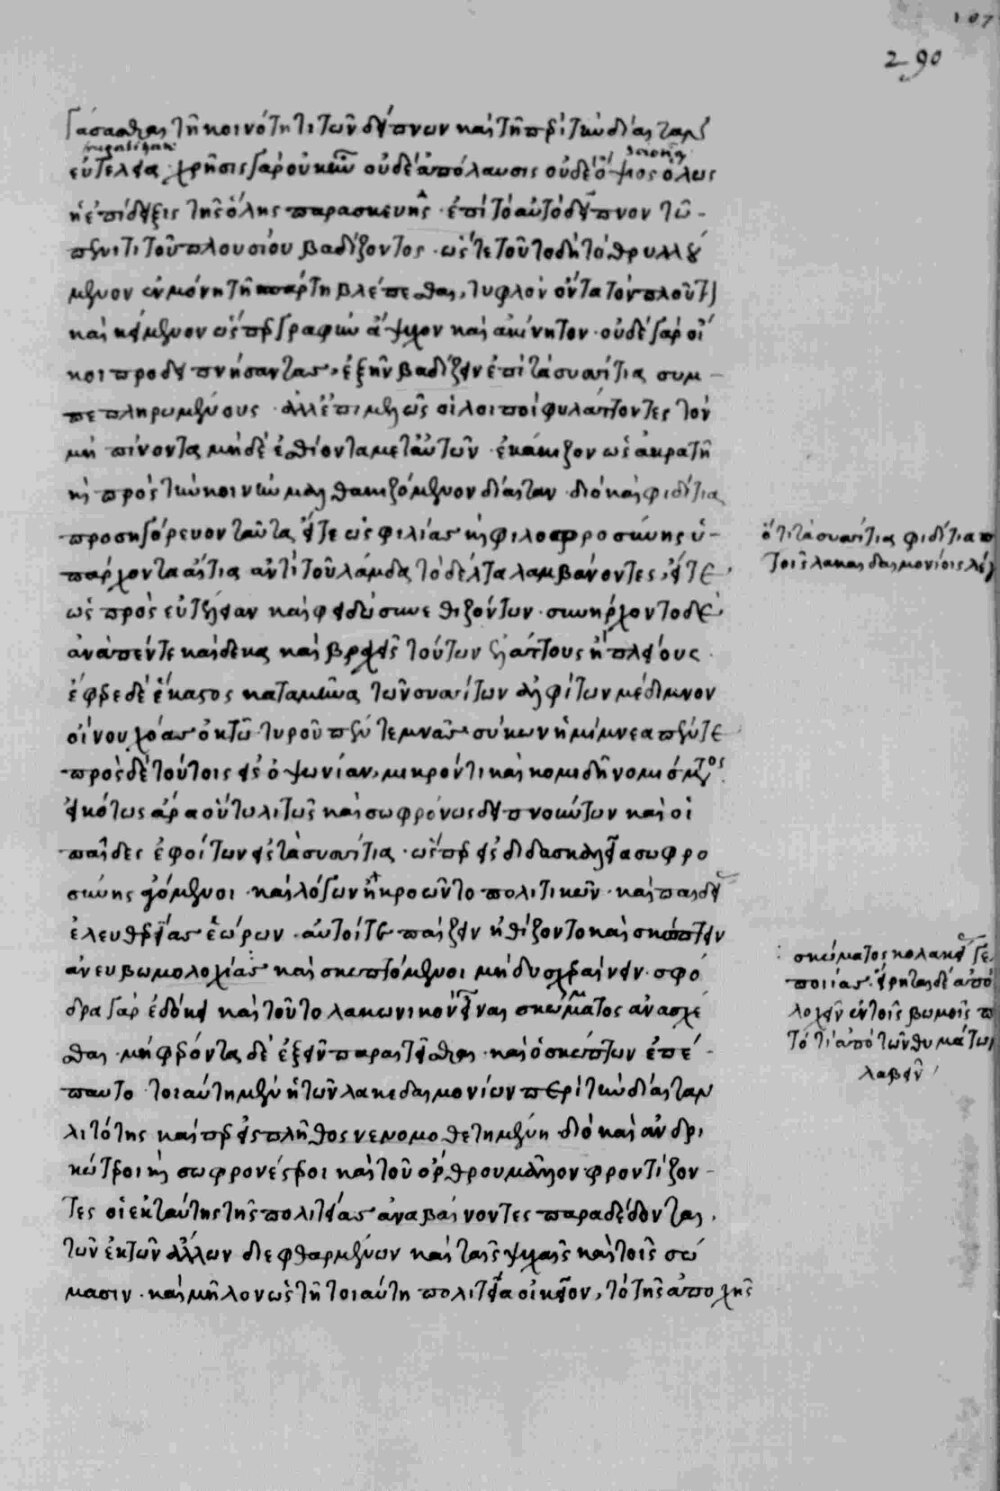 107
290
γάσασθαι τῇ κοινότητι τῶν δείπνων καὶ τῇ περὶ τὴν δίαιταν
εὐτελεία χρῆσις γὰρ οὐκ ἦν οὐδὲ ἀπόλαυσις οὐδὲ ὄψιος ὅλως
ἢ ἐπίδειξις τῆς ὅλης παρασκευῆς · ἐπὶ τὸ αὐτὸ δεῖπνον τῷ
πένητι τοῦ πλουσίου βαδίζοντος · ὥστε τοῦτο δὴ τὸ θρυλλού
μενον ἐν μόνῃ τῇ σπάρτῃ βλέπεσθαι, τυφλὸν ὄντα τὸν πλοῦτον
καὶ κείμενον ὥσπερ γραφὴν ἄψυχον καὶ ἀκίνητον · οὐδὲ γὰρ οἴ
κοι προδειπνήσαντας, ἐξῆν βαδίζειν ἐπὶ τὰ συσσίτια συμ
πεπληρωμένους · ἀλλ' ἐπιμελῶς οἱ λοιποὶ φυλάττοντες τὸν
μὴ πίνοντα μηδὲ ἐσθίοντα μετ' αὐτῶν · ἐκάκιζον ὡς ἀκρατῆ
καὶ πρὸς τὴν κοινὴν μαλθακιζόμενον δίαιταν · διὸ καὶ φιδίτια
προσηγόρευον ταῦτα, εἴτε ὡς φιλίας καὶ φιλοφροσύνης ὑ
πάρχοντα αἴτια ἀντὶ τοῦ λάμδα τὸ δέλτα λαμβάνοντες, εἴτε
ὡς πρὸς εὐτέλειαν καὶ φειδὼ συνεθιζόντων · συνήρχοντο δὲ
ἀνὰ πέντε καὶ δέκα καὶ βραχεῖ τούτων ἐλάττους ἢ πλείους ·
ἔφερε δὲ ἕκαστος κατὰ μῆνα τῶν συσσίτων ἀλφίτων μέδιμνον
οἴνου χόας ὀκτὼ τυροῦ πέντε μνᾶς σύκων ἡμίμνεα πέντε
πρὸς δὲ τούτοις εἰς ὀψωνίαν, μικρόν τι καὶ κομιδῇ νομίσματος
εἰκότως ἄρα οὕτω λιτῶς καὶ σωφρόνως δειπνούντων καὶ οἱ
παῖδες ἐφοίτων εἰς τὰ συσσίτια · ὥσπερ εἰς διδασκαλεῖα σωφρο
σύνης ἀγόμενοι · καὶ λόγων ἠκροῶντο πολιτικῶν · καὶ παιδείας
ἐλευθερίας ἑώρων · αὐτοί τε παίζειν ἠθίζοντο καὶ σκώπτειν
ἄνευ βωμολοχίας καὶ σκωπτόμενοι μὴ δυσχεραίνειν · σφό
δρα γὰρ ἐδόκει καὶ τοῦτο λακωνικὸν εἶναι σκώμματος ἀνασχέ
σθαι · μὴ φέροντα δὲ ἐξεῖν παραιτεῖσθαι · καὶ ὁ σκώπτων ἐπέ
παυτο · τοιαύτη μὲν ἡ τῶν λακεδαιμονίων περὶ τὴν δίαιταν
λιτότης καὶπερ εἰς πλῆθος νενομοθετημένη διὸ καὶ ἀνδρι
κώτεροι καὶ σωφρονέστεροι καὶ τοῦ ὀρθροῦ μᾶλλον φροντίζον
τες οἱ ἐκ ταύτης τῆς πολιτείας ἀναβαίνοντες παραδέδονται,
τῶν ἐκ τῶν ἄλλων διεφθαρμένων καὶ ταῖς ψυχαῖς καὶ τοῖς σώ
μασιν · καὶ δῆλον ὡς τῇ τοιαύτῃ πολιτείᾳ οἰκεῖον, τὸ τῆς ἀποχῆς
ὅτι τὰ συσσίτια φιδίτια π
τοῖς λακεδαιμονίοις λέγ
σκώμματος κολακεί
ποιίας · εἴρηται δὲ ἀπὸ
λοχεῖν ἐν τοῖς βωμοῖς π
τό τι ἀπὸ τῶν θυμάτων
λαβεῖν